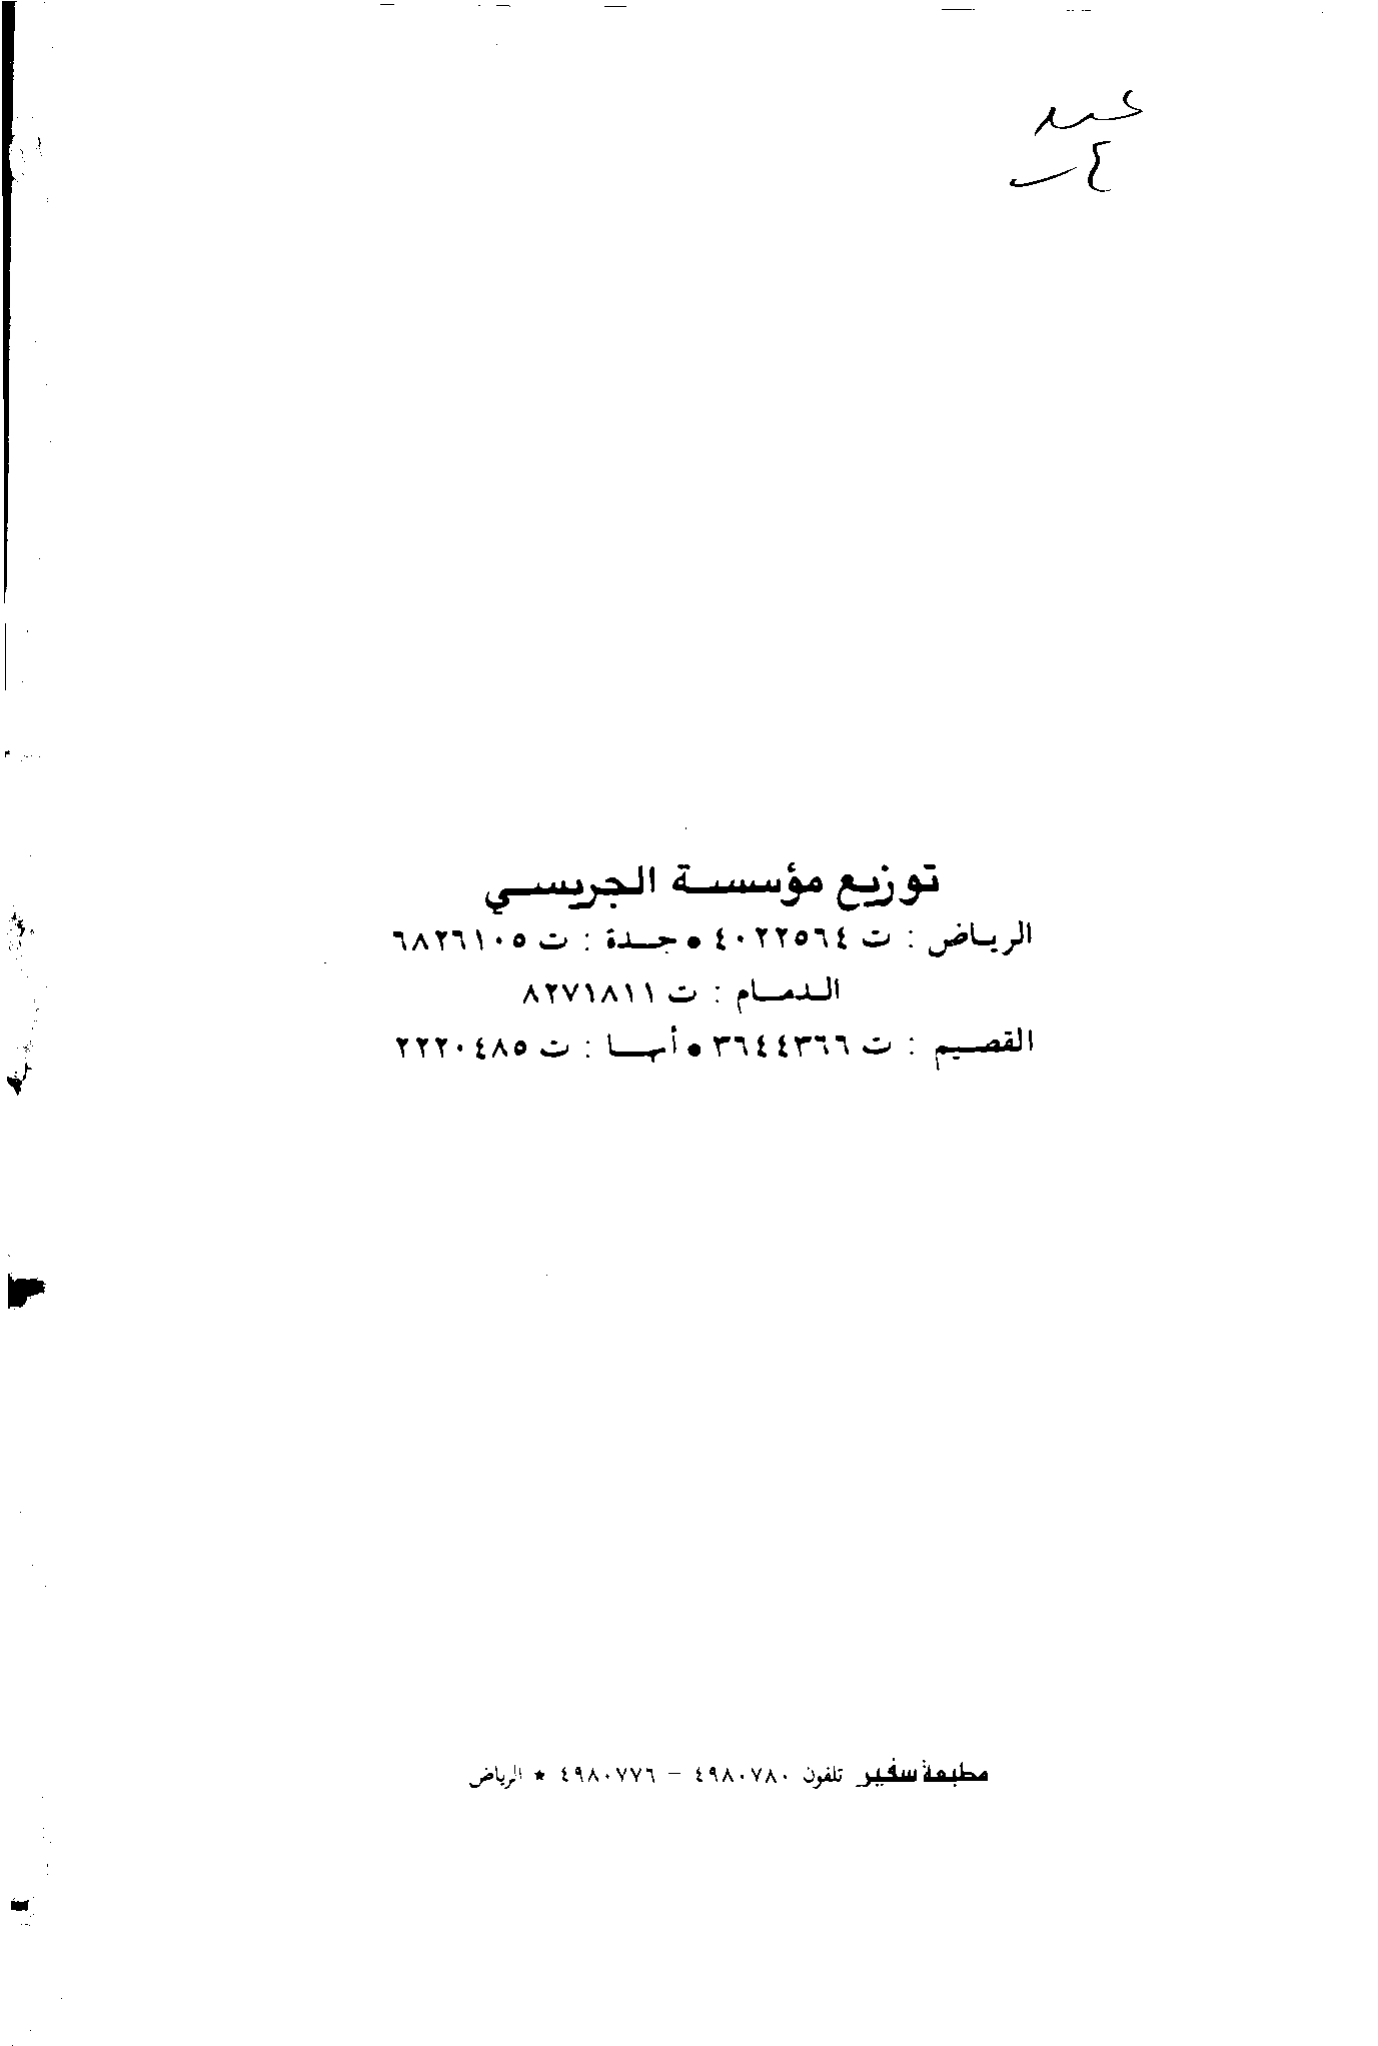 توزيع مؤسسة الجريسي
الرياض : ت ٤٠٢٢٥٦٤ • جدة : ت ٦٨٢٦١٠٥
الدمام : ت ٨٢٧١٨١١
القصيم : ت ٣٦٤٤٣٦٦ • أبها : ت ٢٢٢٠٤٨٥
مطبعة سفير تلفون ٤٩٨٠٧٨٠ – ٤٩٨٠٧٧٦ * الرياض